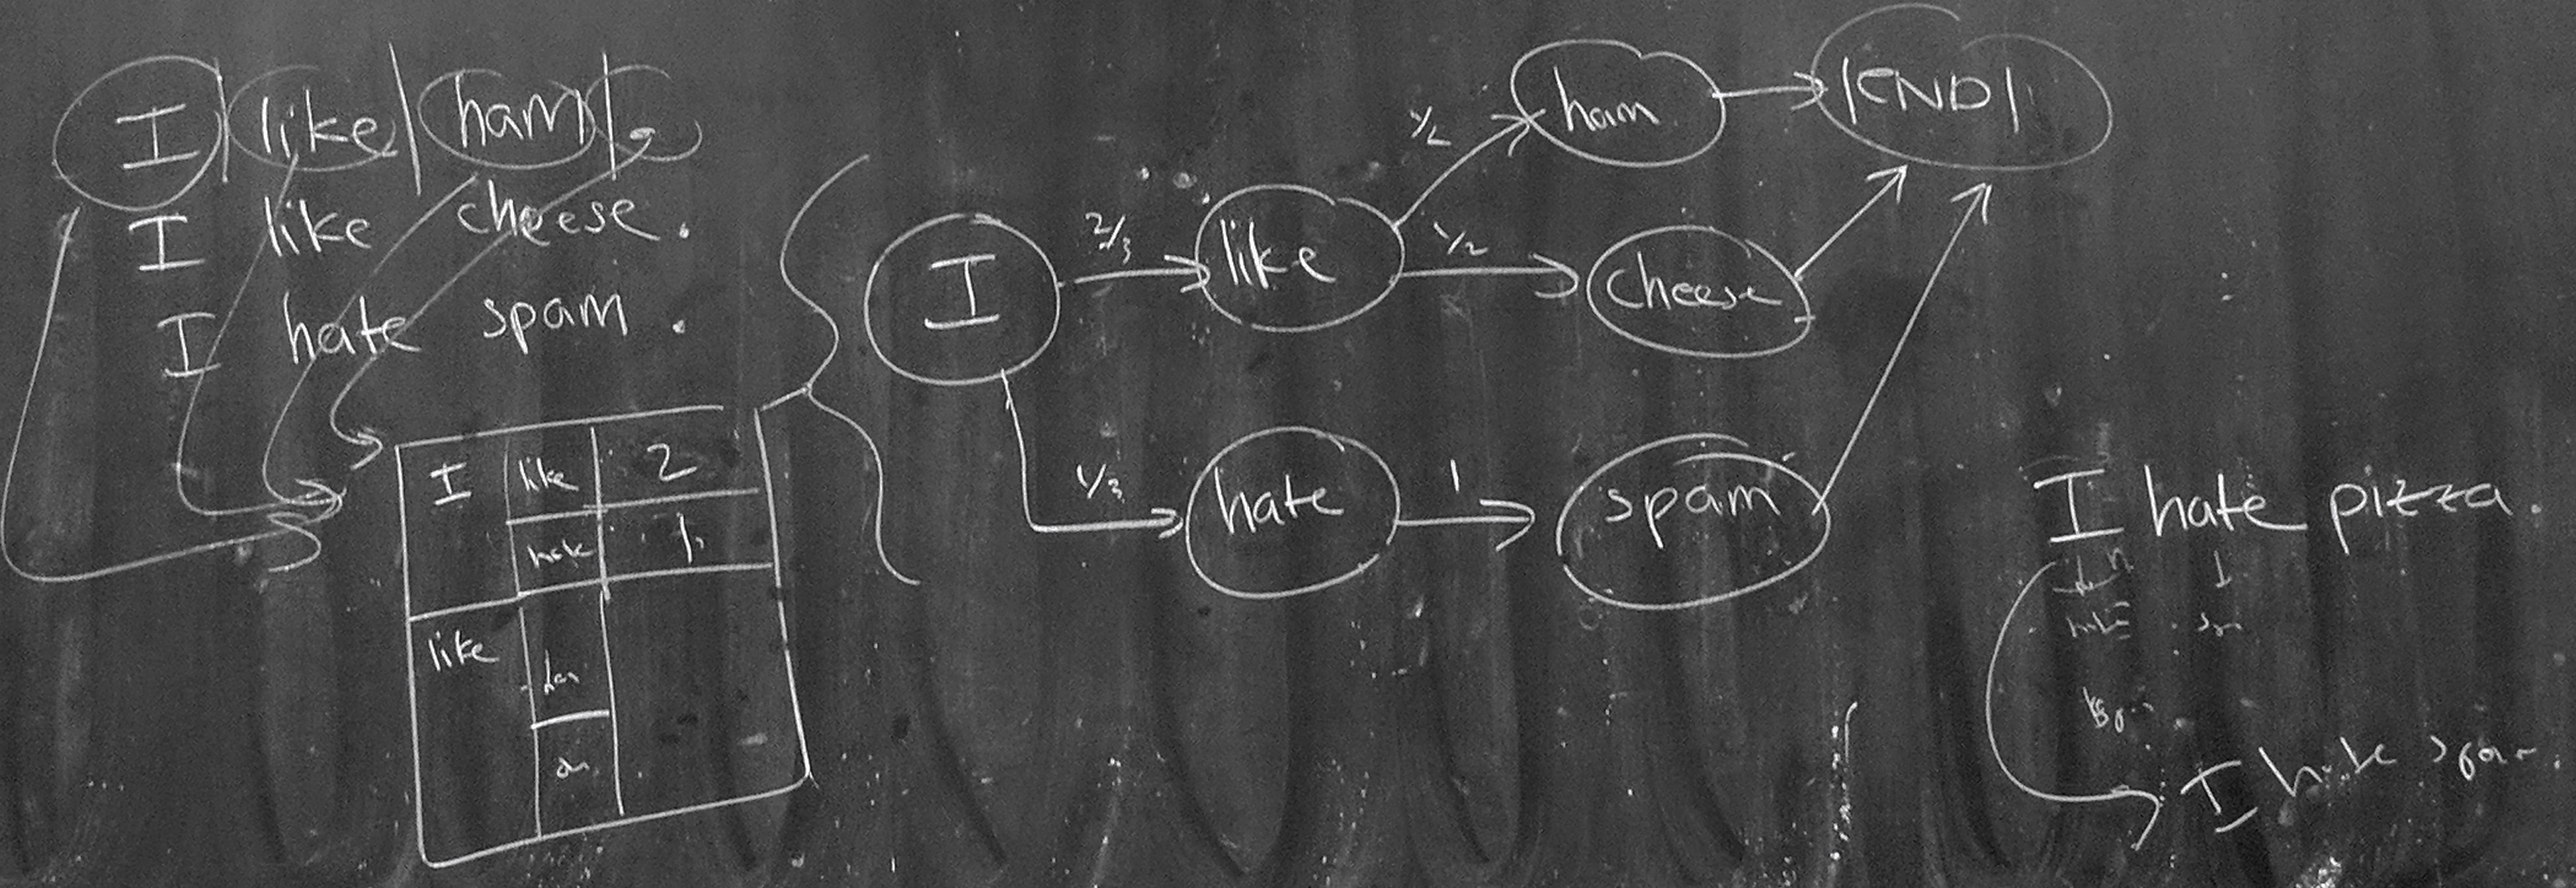 I | like | ham | .
I like cheese.
I hate spam.
I like 2
hate 1
like ham
I
2/3
like
1/2
ham
|END|
1/2
cheese
1/3
hate
1
spam
I hate pizza.
I hate spam.